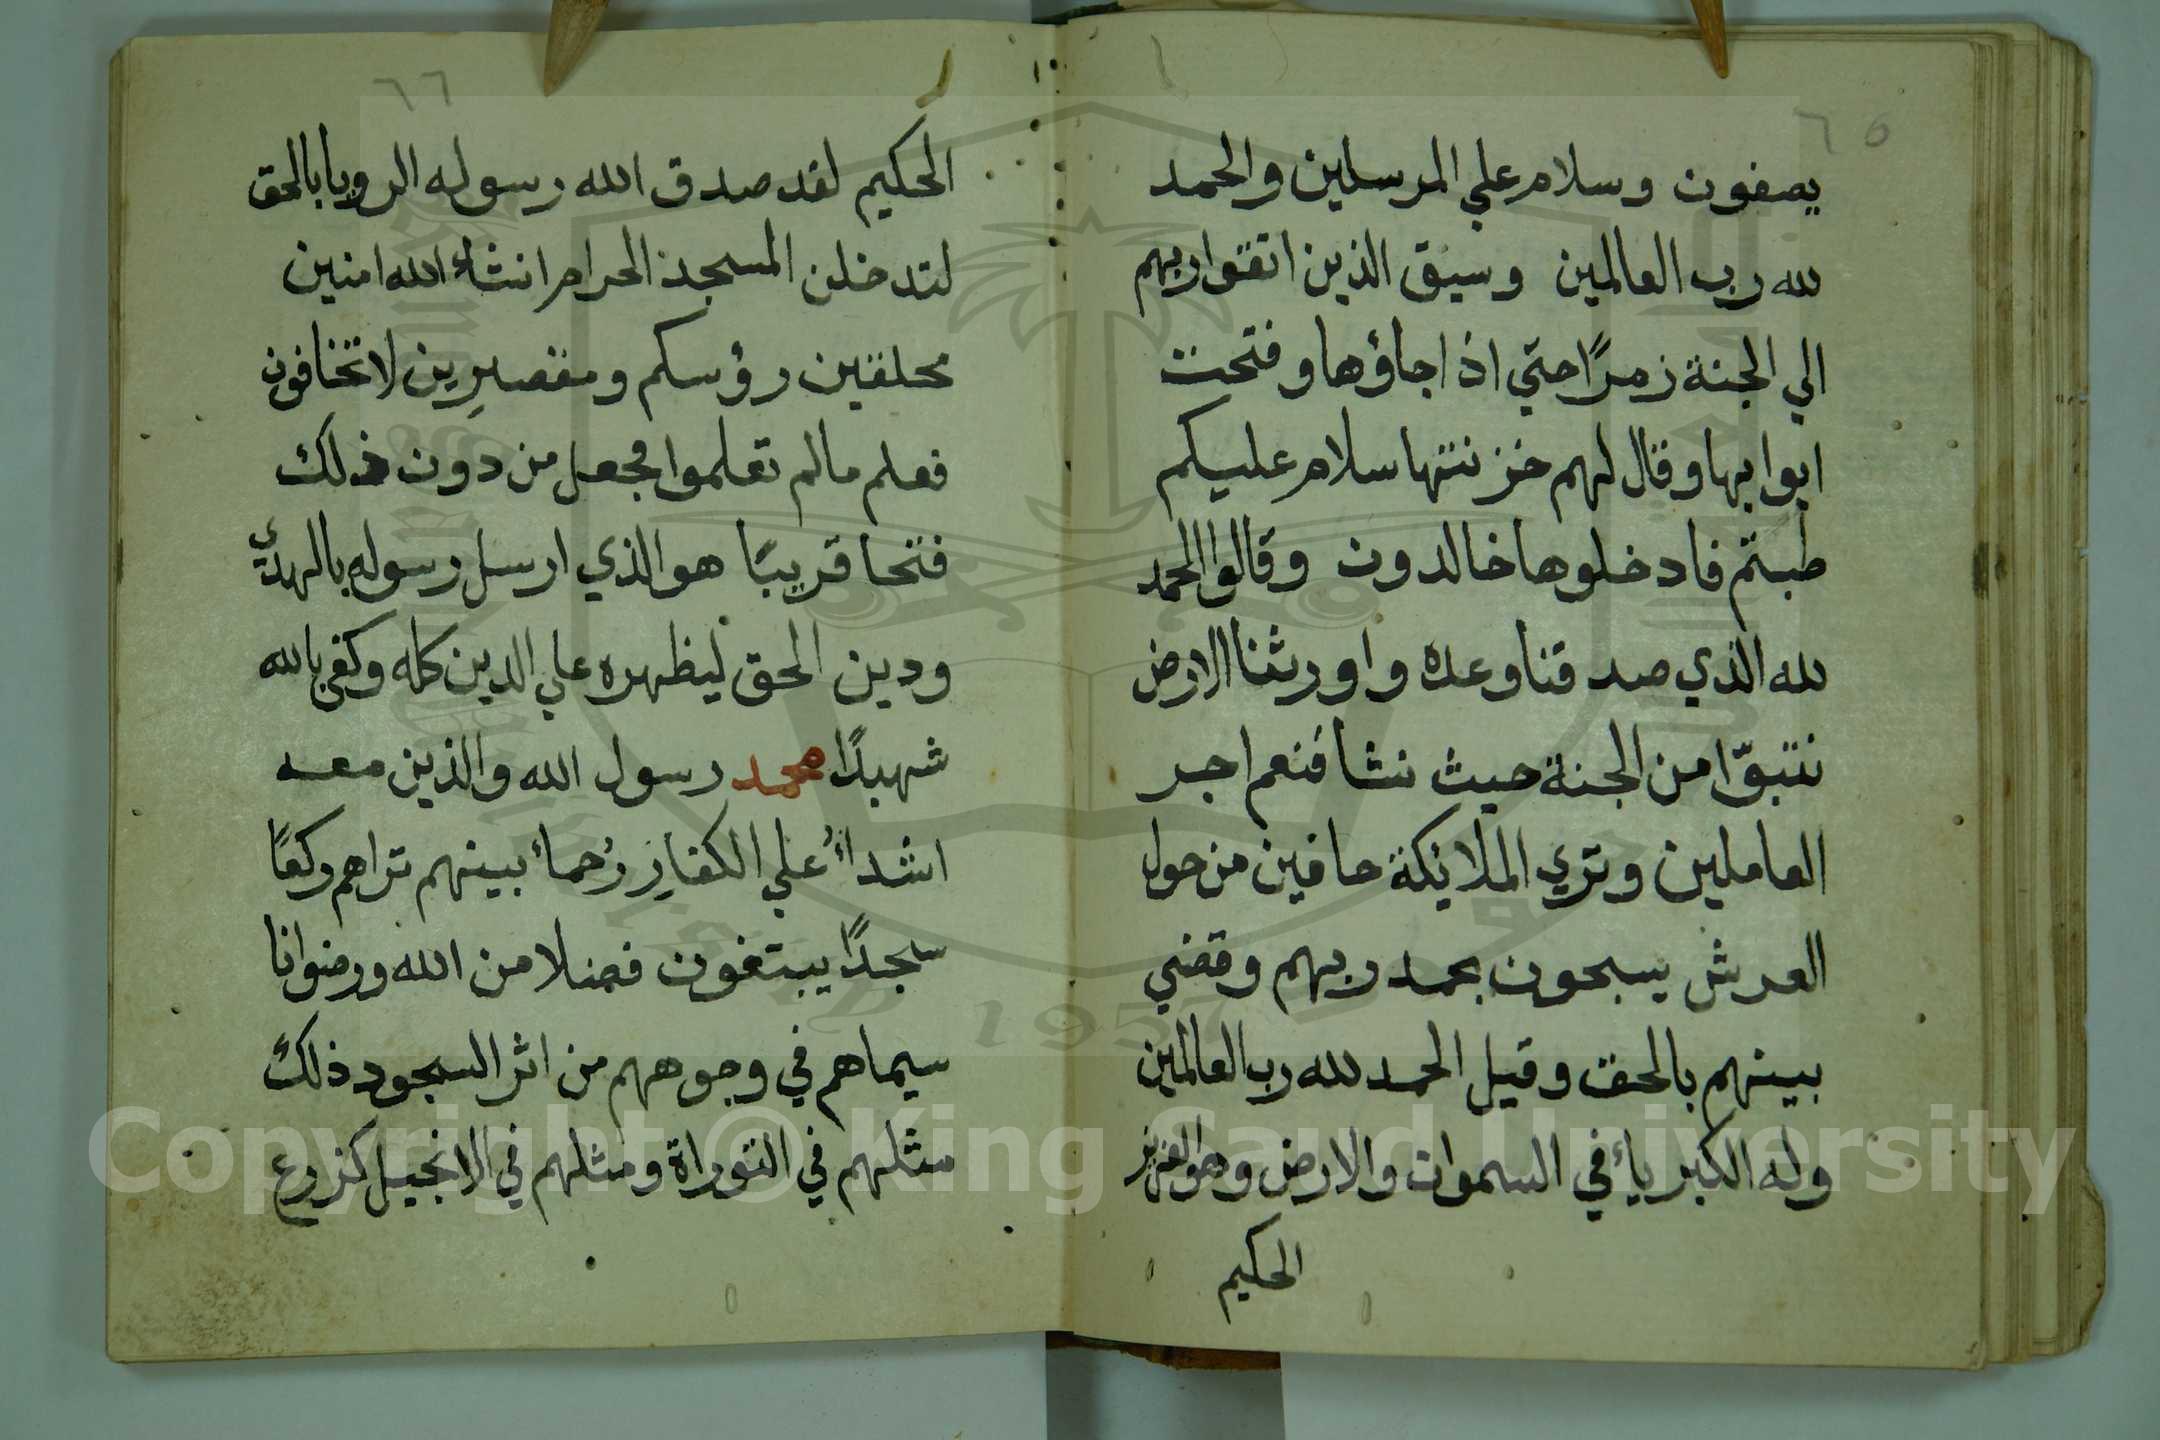 ٦٥
يصفون وسلام علي المرسلين والحمد
لله رب العالمين وسيق الذين اتقوا ربهم
الي الجنة زمرًا حتي اذا جاؤها وفتحت
ابوابها وقال لهم خزنتها سلام عليكم
طبتم فادخلوها خالدون وقالوا الحمد
لله الذي صدقنا وعده واورثنا الارض
نتبوّا من الجنة حيث نشا فنعم اجر
العاملين وتري الملائكة حافين من حول
العرش يسبحون بحمد ربهم وقضي
بينهم بالحق وقيل الحمد لله رب العالمين
وله الكبرياء في السموات والارض وهو العزيز
الحكيم
٦٦
الحكيم لقد صدق الله رسوله الرويا بالحق
لتدخلن المسجد الحرام انشاء الله امنين
محلقين رؤسكم ومقصرِين لا تخافون
فعلم مالم تعلموا فجعل من دون ذلك
فتحا قريبًا هو الذي ارسل رسوله بالهدي
ودين الحق ليظهره علي الدين كله وكفي بالله
شهيدًا محمد رسول الله والذين معه
اشداءُ علي الكفارِ رُحماء بينهم تراهم ركعًا
سجدًا يبتغون فضلا من الله ورضوانا
سيماهم في وجوههم من اثر السجود ذلك
مثلهم في التوراة ومثلهم في الانجيل كزرع
1957
Copyright © King Saud University